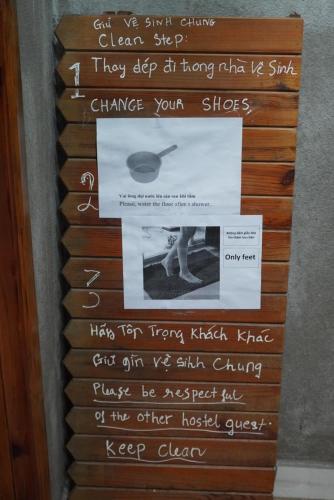 Giữ Vệ Sinh Chung
Clean Step:
1 Thay dép đi trong nhà Vệ Sinh
CHANGE YOUR SHOES,
2
Vui lòng dội nước lên sàn sau khi tắm
Please, water the floor after a shower.
3
Only feet
Hãy Tôn Trọng Khách Khác
Giữ gìn Vệ Sinh Chung
Please be respectful
of the other hostel guest.
Keep clean